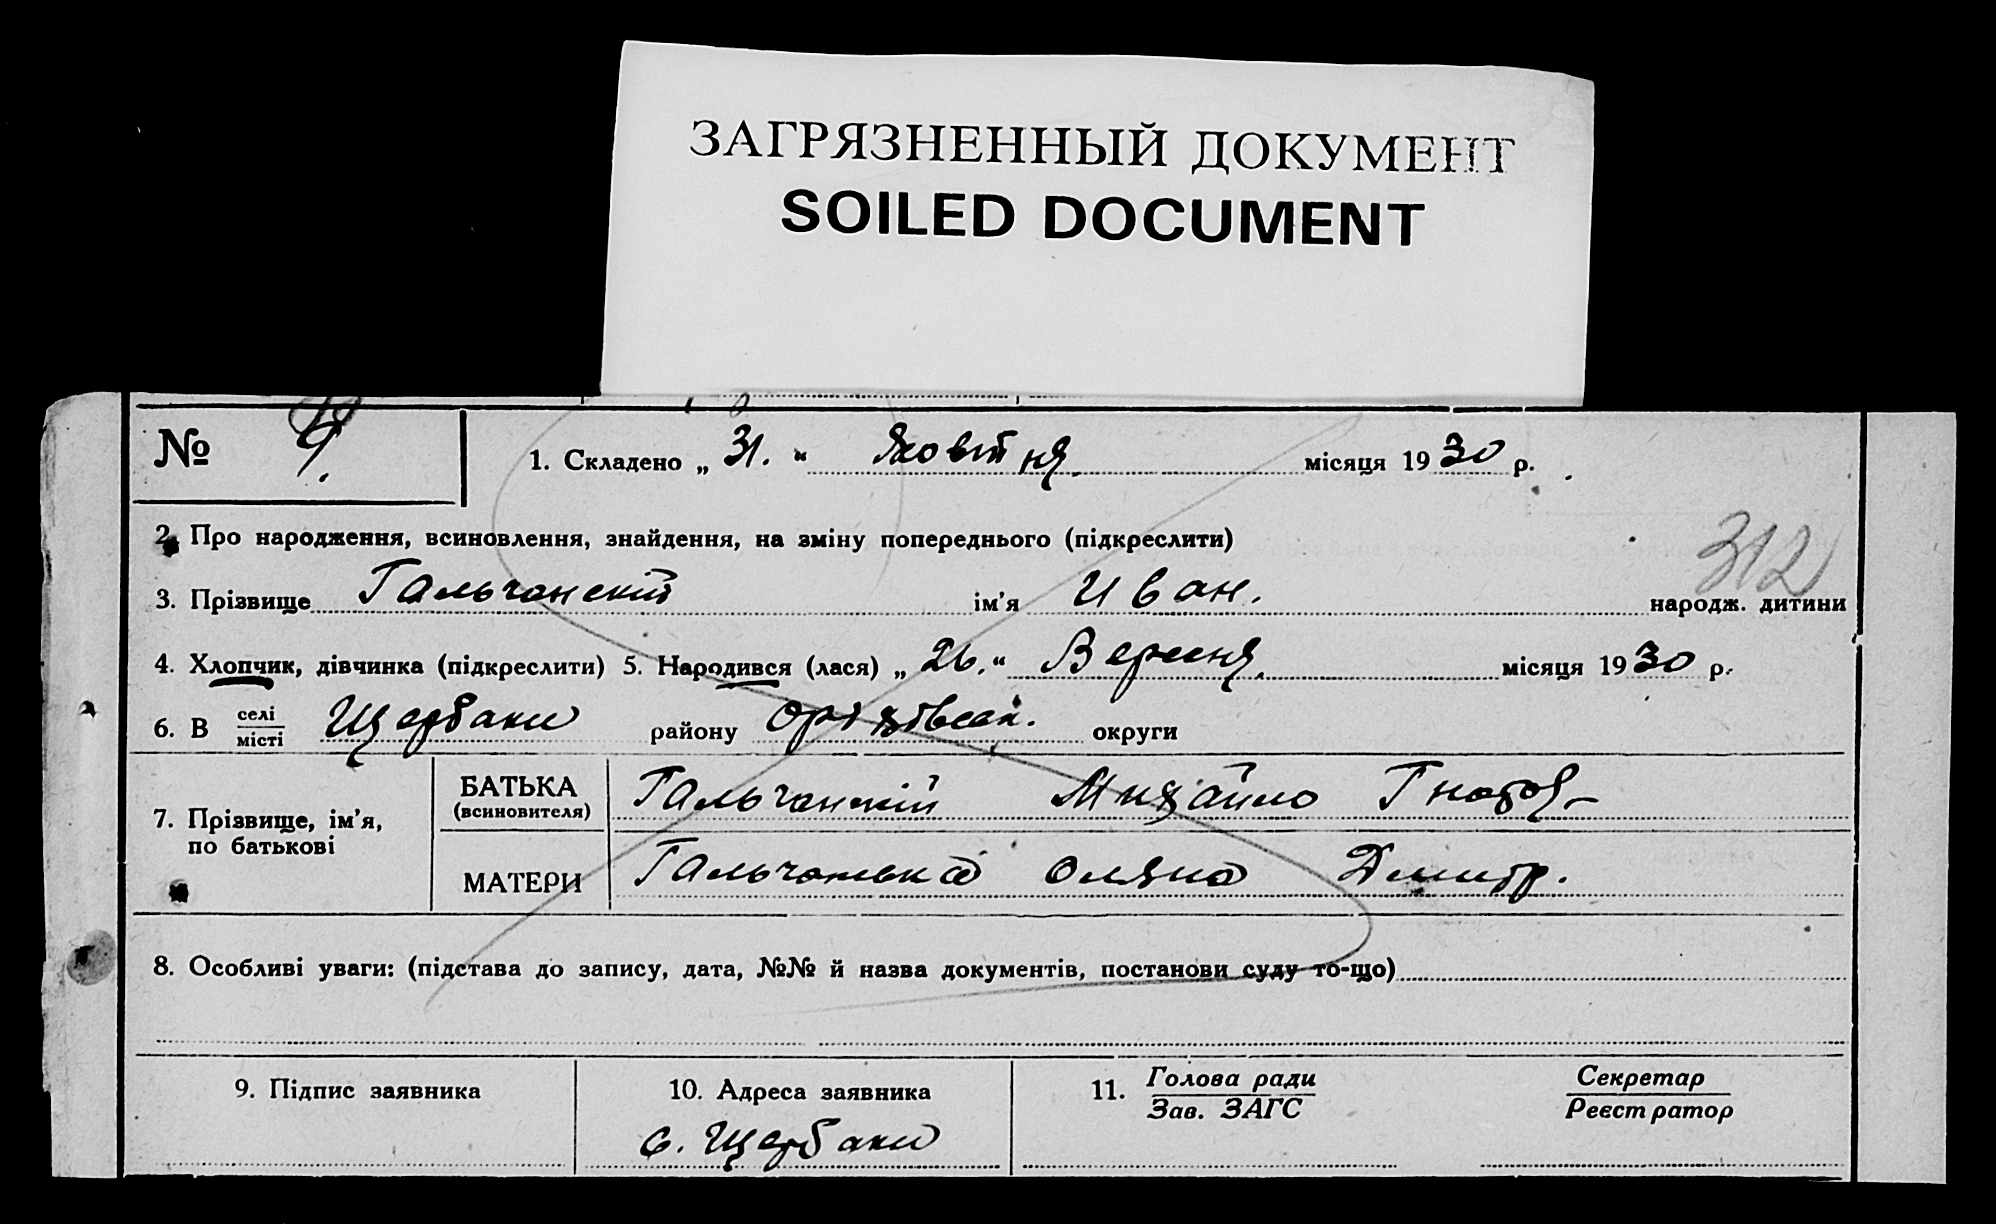 ЗАГРЯЗНЕННЫЙ ДОКУМЕНТ
SOILED DOCUMENT
№ 9.
1. Складено „ 31. “ Жовтня. місяця 1930 р.
2. Про народження, всиновлення, знайдення, на зміну попереднього (підкреслити)
312
3. Прізвище Гальчанский ім'я Иван. народж. дитини
4. Хлопчик, дівчинка (підкреслити) 5. Народився (лася) „ 26. “ Вересня. місяця 1930 р.
6. В селі Щербаки району округи
місті
7. Прізвище, ім'я, по батькові
БАТЬКА (всиновителя) Гальчанский Михайло
МАТЕРИ Гальчанська Оляна Дмитр.
8. Особливі уваги: (підстава до запису, дата, №№ й назва документів, постанови суду то-що)
9. Підпис заявника
10. Адреса заявника
с. Щербаки
11. Голова ради
Зав. ЗАГС
Секретар
Реєстратор